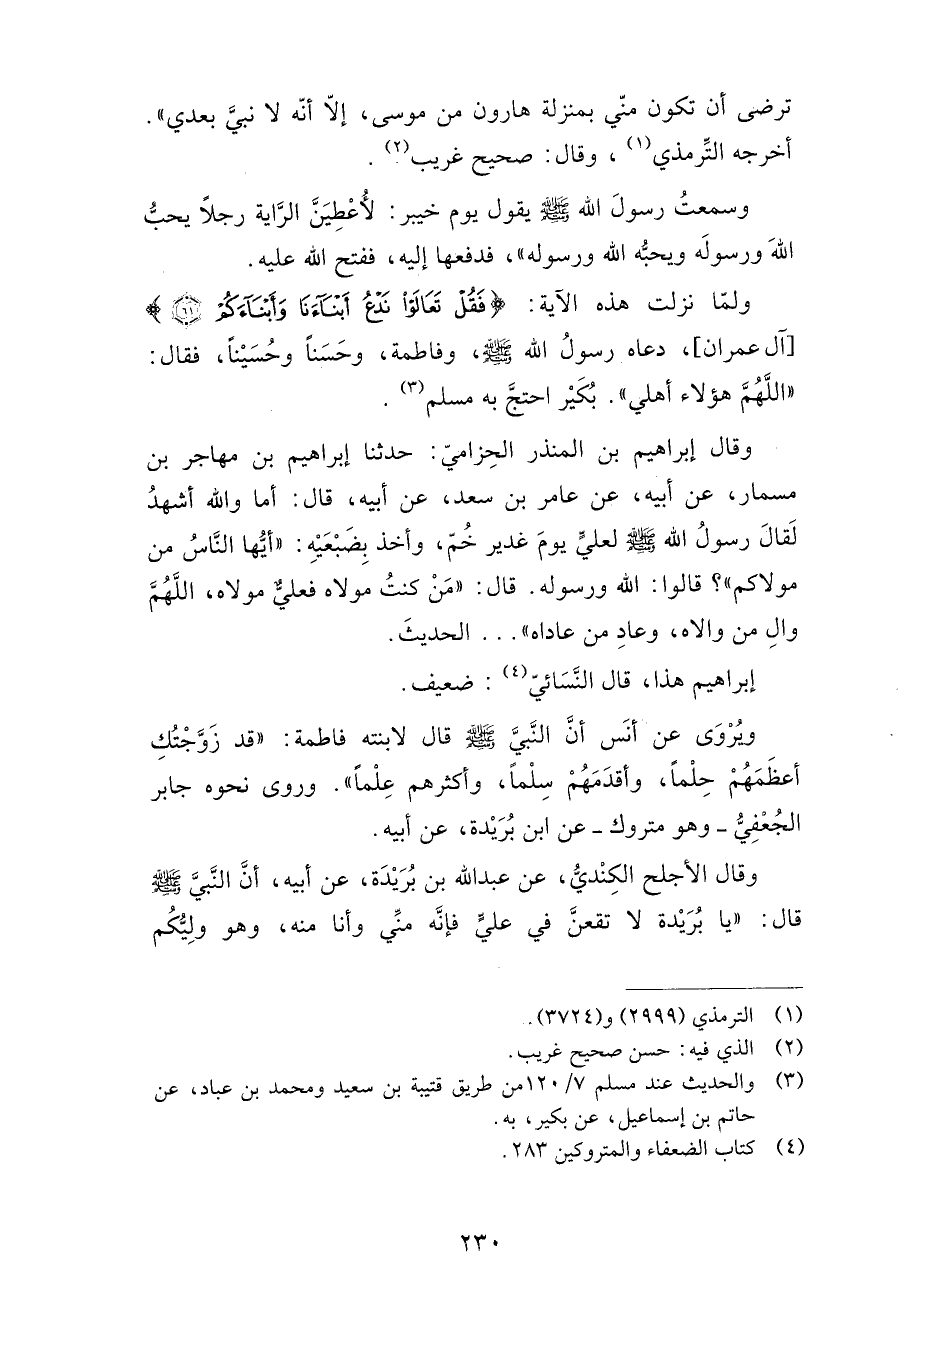 ترضى أن تكون منّي بمنزلة هارون من موسى، إلاّ أنّه لا نبيَّ بعدي».
أخرجه التِّرمذي(١) ، وقال: صحيح غريب(٢) .
وسمعتُ رسولَ الله ﷺ يقول يوم خيبر: لأُعْطِيَنَّ الرَّاية رجلاً يحبُّ
اللهَ ورسولَه ويحبُّه الله ورسوله»، فدفعها إليه، ففتح الله عليه.
ولمّا نزلت هذه الآية: ﴿فَقُلْ تَعَالَوْا۟ نَدْعُ أَبْنَآءَنَا وَأَبْنَآءَكُمْ ٦١﴾
[آل عمران]، دعاه رسولُ الله ﷺ، وفاطمة، وحَسَناً وحُسَيْناً، فقال:
«اللَّهُمَّ هؤلاء أهلي». بُكَيْر احتجَّ به مسلم(٣) .
وقال إبراهيم بن المنذر الحِزاميّ: حدثنا إبراهيم بن مهاجر بن
مسمار، عن أبيه، عن عامر بن سعد، عن أبيه، قال: أما والله أشهدُ
لَقالَ رسولُ الله ﷺ لعليٍّ يومَ غدير خُمّ، وأخذ بِضَبْعَيْهِ: «أيُّها النَّاسُ من
مولاكم»؟ قالوا: الله ورسوله. قال: «مَنْ كنتُ مولاه فعليٌّ مولاه، اللَّهُمَّ
والِ من والاه، وعادِ من عاداه»... الحديثَ.
إبراهيم هذا، قال النَّسَائيّ(٤) : ضعيف.
ويُرْوَى عن أنَس أنَّ النَّبيَّ ﷺ قال لابنته فاطمة: «قد زَوَّجْتُكِ
أعظَمَهُمْ حِلْماً، وأقدَمَهُمْ سِلْماً، وأكثرهم عِلْماً». وروى نحوه جابر
الجُعْفِيُّ ـ وهو متروك ـ عن ابن بُرَيْدة، عن أبيه.
وقال الأجلح الكِنْديُّ، عن عبدالله بن بُرَيْدَة، عن أبيه، أنَّ النَّبيَّ ﷺ
قال: «يا بُرَيْدة لا تقعنَّ في عليٍّ فإنَّه منِّي وأنا منه، وهو وليُّكُم
(١) الترمذي (٢٩٩٩) و(٣٧٢٤).
(٢) الذي فيه: حسن صحيح غريب.
(٣) والحديث عند مسلم ٧/ ١٢٠من طريق قتيبة بن سعيد ومحمد بن عباد، عن
حاتم بن إسماعيل، عن بكير، به.
(٤) كتاب الضعفاء والمتروكين ٢٨٣.
٢٣٠